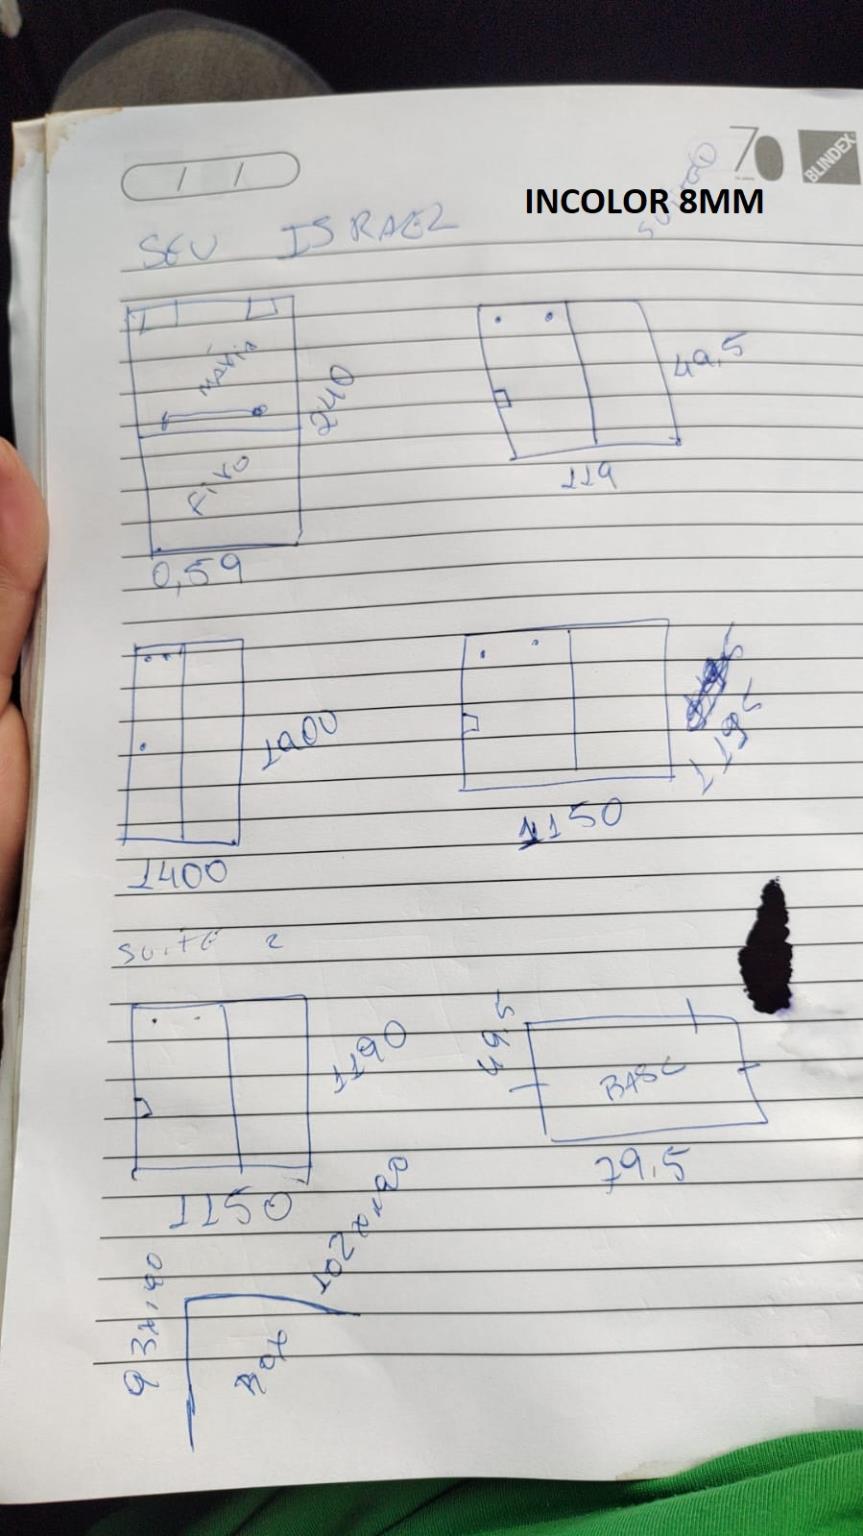 70
BLINDEX
INCOLOR 8MM
SEU ISRAEL
MÓVIO
240
FIXO
0,59
49,5
119
1900
1400
1195
1150
SUITE 2
1190
1150
49,5
BASC
79,5
102x190
93x190
BOX